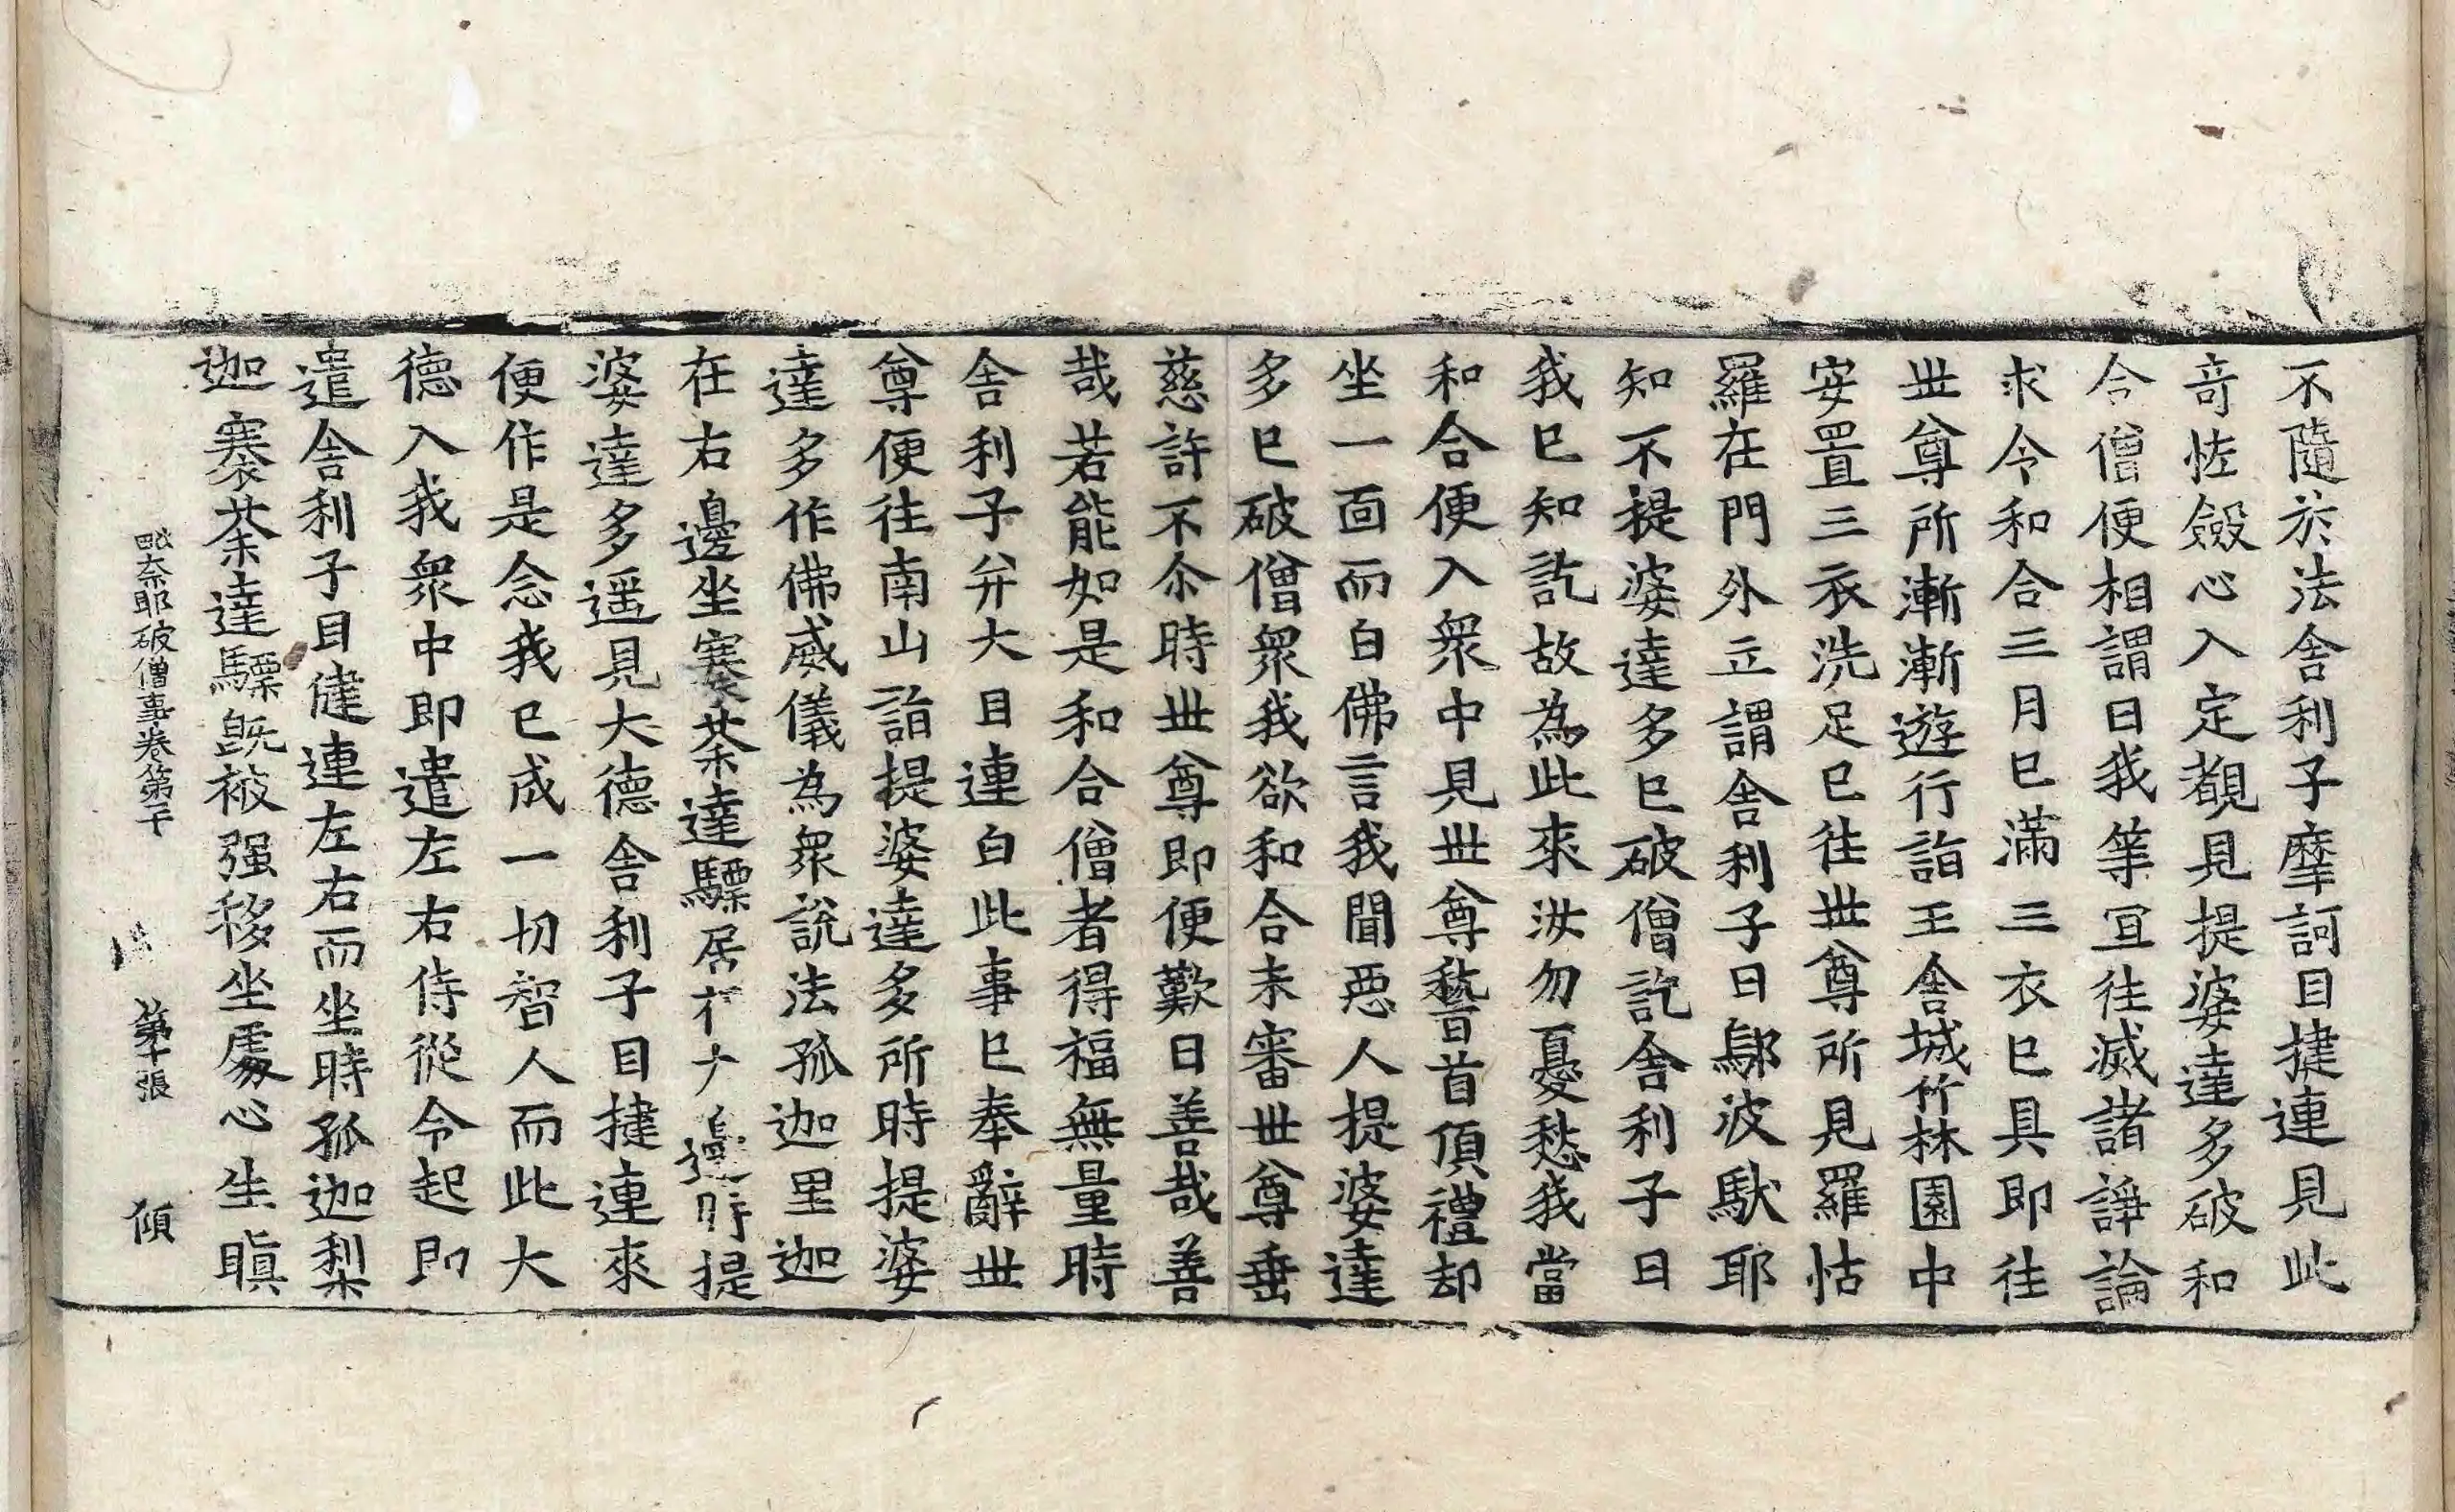 不隨於法舍利子摩訶目揵連見此
奇恠斂心入定觀見提婆達多破和
合僧便相謂曰我等冝往滅諸諍論
求令和合三月已滿三衣已具即往
世尊所漸漸遊行詣王舍城竹林園中
安置三衣洗足已往世尊所見羅怙
羅在門外立謂舍利子曰鄔波馱耶
知不提婆達多已破僧訖舍利子曰
我已知訖故為此來汝勿憂愁我當
和合便入衆中見世尊稽首頂禮却
坐一面而白佛言我聞惡人提婆達
多已破僧衆我欲和合未審世尊垂
慈許不尒時世尊即便歎曰善哉善
哉若能如是和合僧者得福無量時
舍利子弁大目連白此事已奉辭世
尊便往南山詣提婆達多所時提婆
達多作佛威儀為衆說法孤迦里迦
在右邊坐褰荼達驃居 邊時提
婆達多遥見大德舍利子目揵連來
便作是念我已成一切智人而此大
德入我衆中即遣左右侍從令起即
遣舍利子目揵連左右而坐時孤迦梨
迦褰荼達驃旣被强移坐處心生瞋
毗奈耶破僧事卷第十 第十張 傾